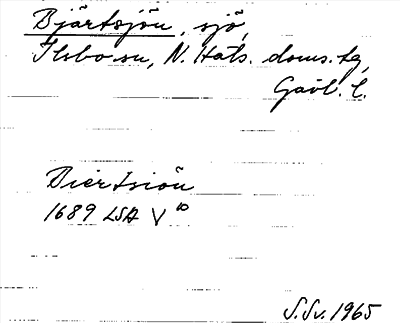 Bjärtsjön, sjö,
Ilsbo sn, N. Häls. doms. tg,
Gävl. l.
Biertsiön
1689 LSA V 10
S.Sv. 1965